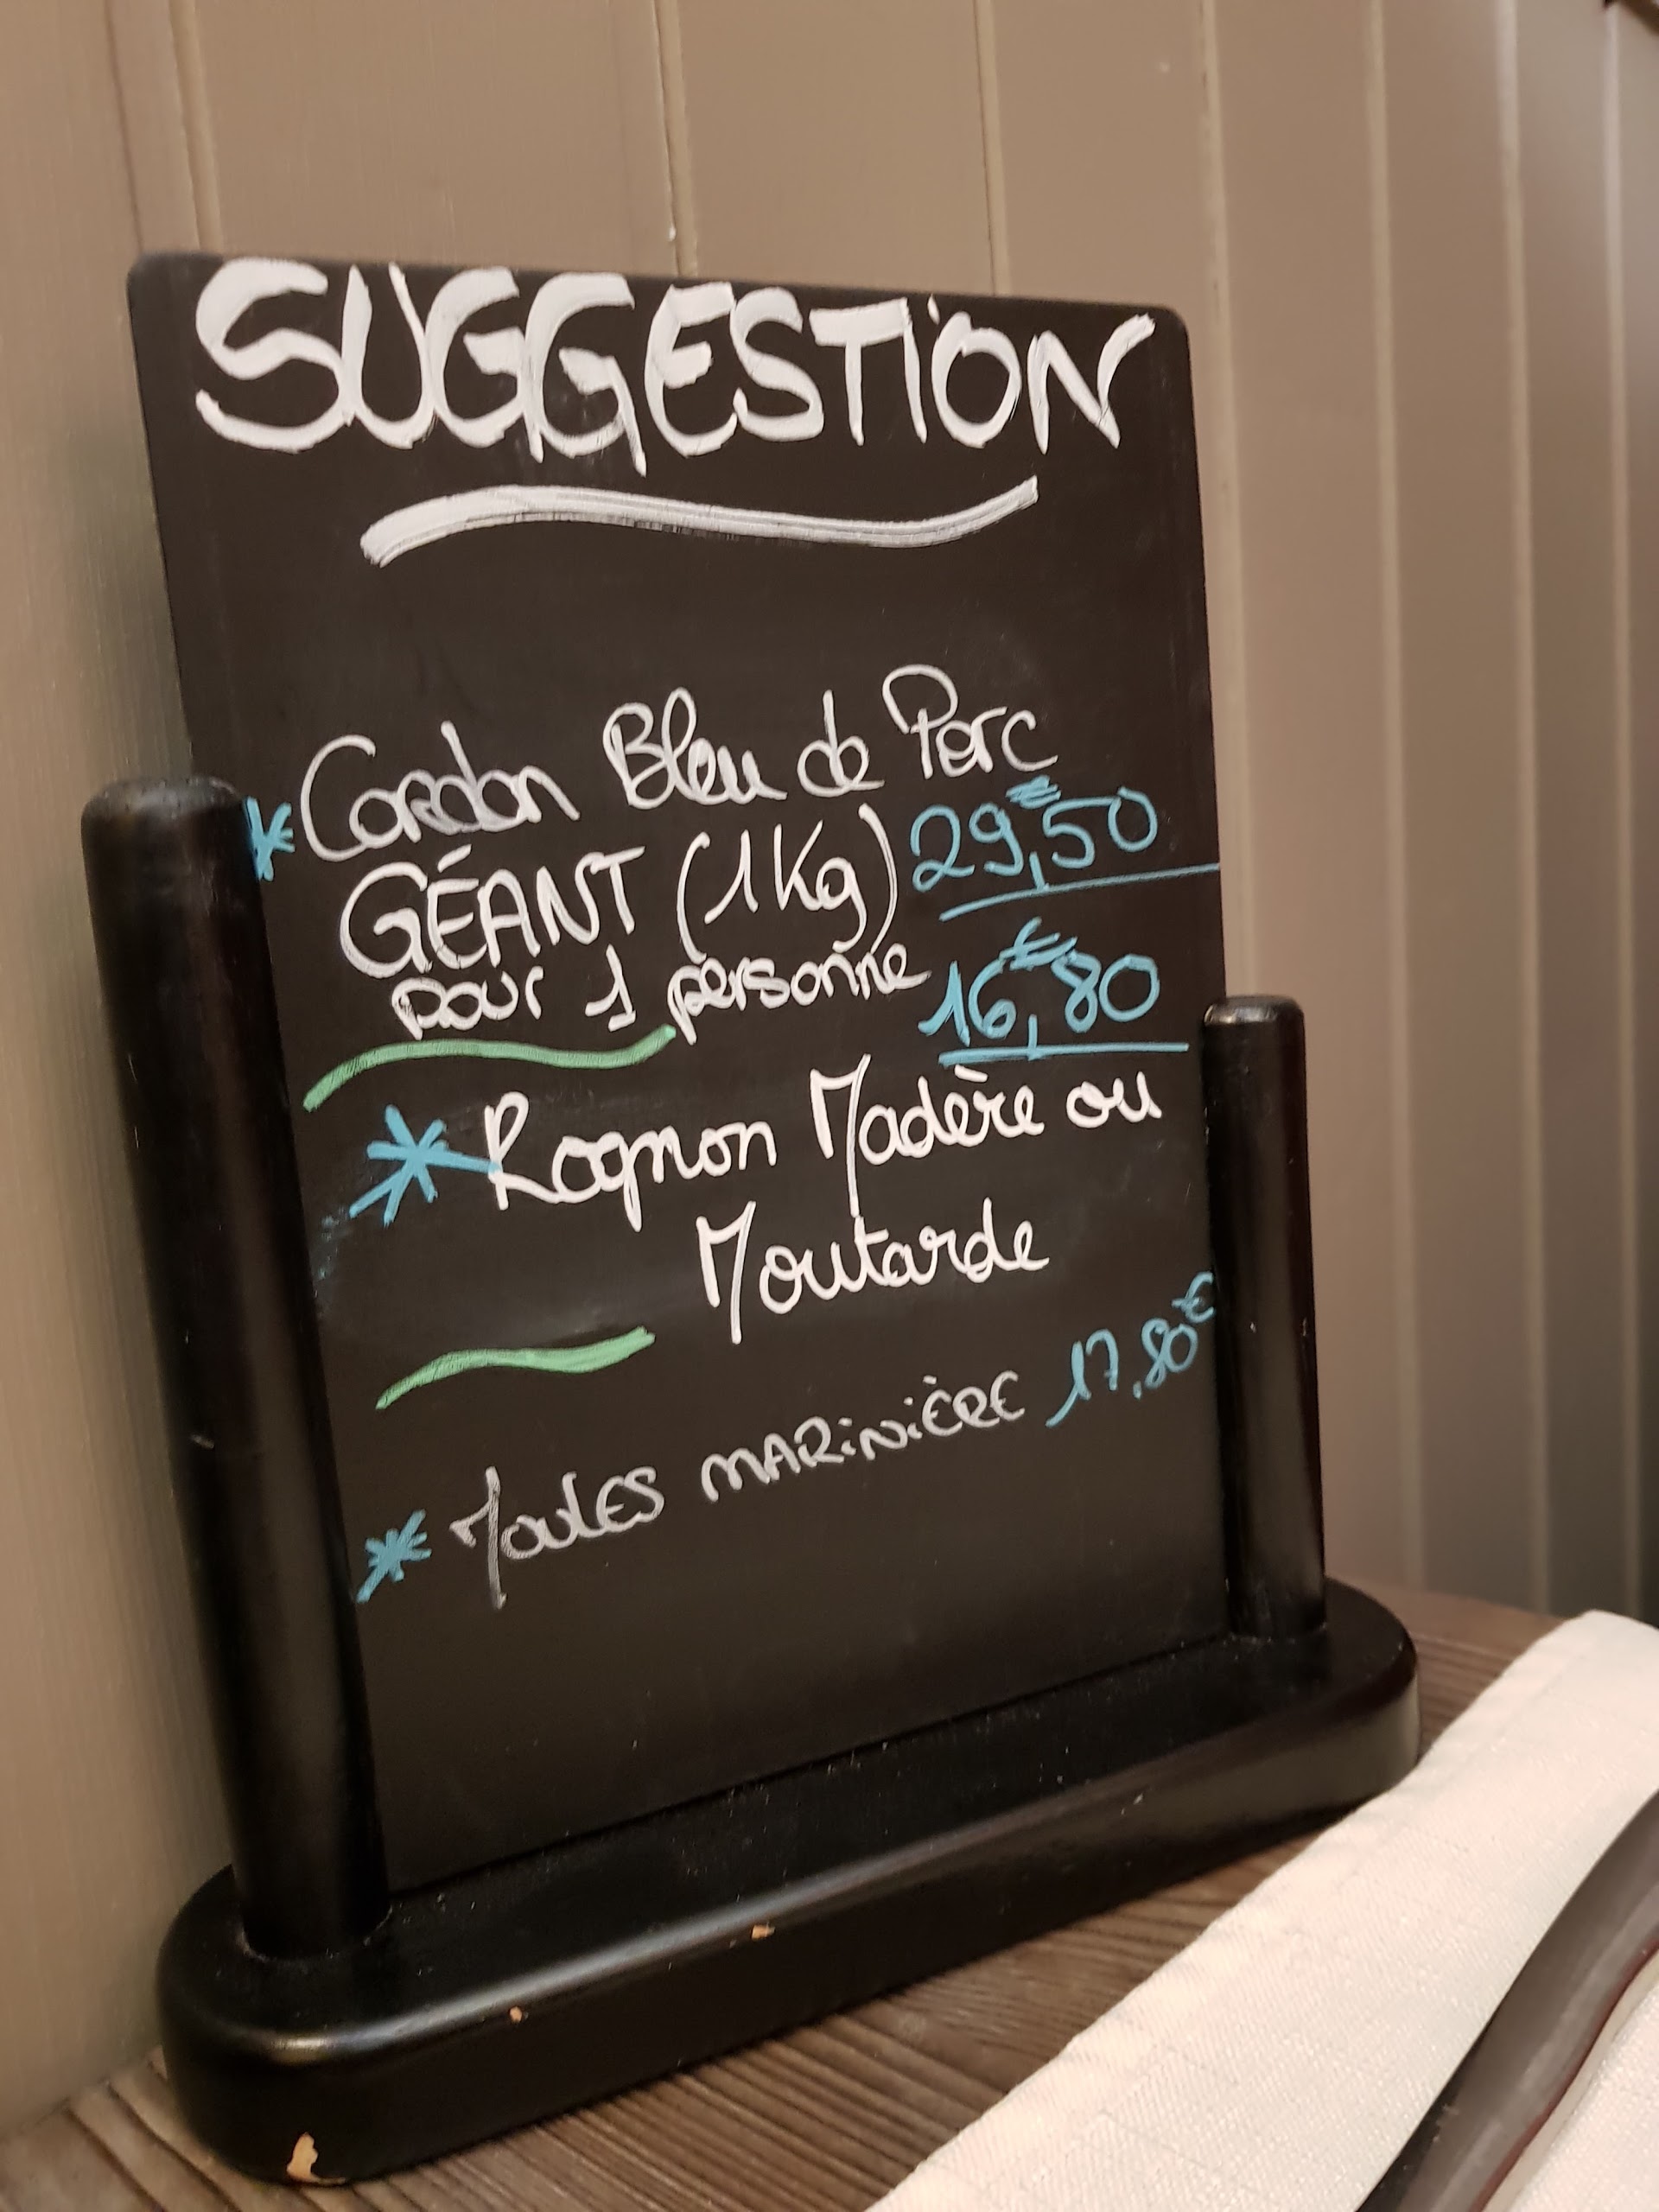 SUGGESTION
* Cordon Bleu de Porc
GÉANT (1Kg) 29,50€
pour 1 personne
16,80€
* Rognon Madère ou
Moutarde
* Moules MARiNiÈRE 17,80€